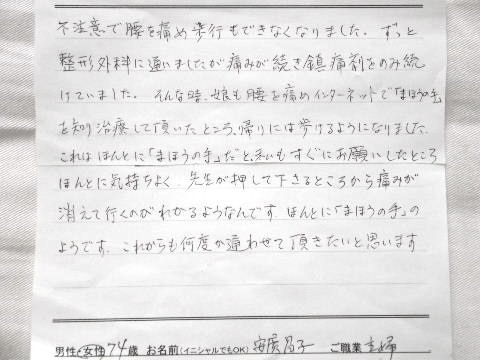 不注意で腰を痛め歩行もできなくなりました。ずっと
整形外科に通いましたが痛みが続き鎮痛剤をのみ続
けていました。そんな時、娘も腰を痛めインターネットで「まほうの手」
を知り治療して頂いたところ、帰りには歩けるようになりました。
これはほんとに「まほうの手」だと、私もすぐにお願いしたところ
ほんとに気持ちよく、先生が押して下さるところから痛みが
消えて行くのがわかるようなんです。ほんとに「まほうの手」の
ようです。これからも何度か通わせて頂きたいと思います
男性・女性 74歳 お名前(イニシャルでもOK) 子 ご職業 主婦